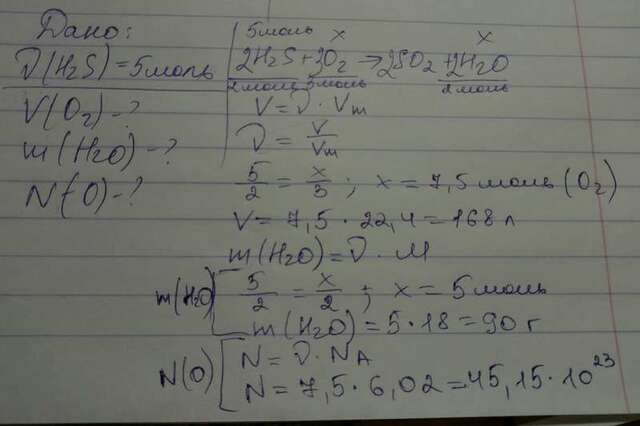 Дано:
ν(H₂S) = 5 моль
V(O₂) - ?
m(H₂O) - ?
N(O) - ?
5 моль x x
2H₂S + 3O₂ → 2SO₂ + 2H₂O
2 моль 3 моль 2 моль
V = ν · Vm
ν = V/Vm
5/2 = x/3 ; x = 7,5 моль (O₂)
V = 7,5 · 22,4 = 168 л
m(H₂O) = ν · M
m(H₂O) [ 5/2 = x/2 ; x = 5 моль
m(H₂O) = 5 · 18 = 90 г
N(O) [ N = ν · NA
N = 7,5 · 6,02 = 45,15 · 10²³